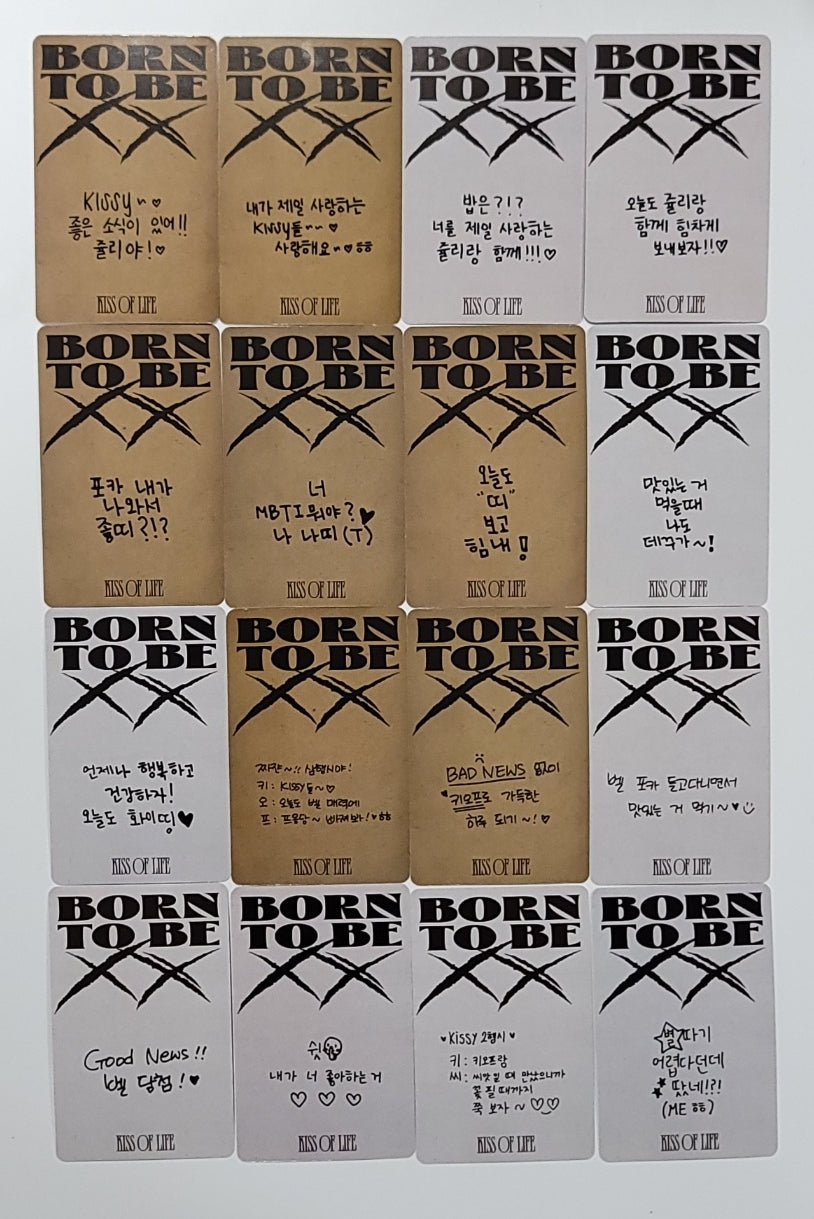 BORN
TO BE
XX
KISSY~♡
좋은 소식이 있어!!
쥴리야!♡
KISS OF LIFE
BORN
TO BE
XX
내가 제일 사랑하는
KISSY들~~♡
사랑해요~♡ㅎㅎ
KISS OF LIFE
BORN
TO BE
XX
밥은?!?
너를 제일 사랑하는
쥴리랑 함께!!!♡
KISS OF LIFE
BORN
TO BE
XX
오늘도 쥴리랑
함께 힘차게
보내보자!!♡
KISS OF LIFE
BORN
TO BE
XX
포카 내가
나와서
좋띠?!?
KISS OF LIFE
BORN
TO BE
XX
너
MBTI 뭐야?♥
나 나띠(T)
KISS OF LIFE
BORN
TO BE
XX
오늘도
"띠"
보고
힘내!
KISS OF LIFE
BORN
TO BE
XX
맛있는 거
먹을때
나도
데꾸가~!
KISS OF LIFE
BORN
TO BE
XX
언제나 행복하고
건강하자!
오늘도 화이띵♥
KISS OF LIFE
BORN
TO BE
XX
짜잔~!! 삼행시야!
키: KISSY들~♡
오: 오늘도 벨 매력에
프: 프옹당~ 빠져봐!♥ㅎㅎ
KISS OF LIFE
BORN
TO BE
XX
BAD NEWS 없이
♥키오프로 가득한
하루 되기~!♡
KISS OF LIFE
BORN
TO BE
XX
벨 포카 들고다니면서
맛있는 거 먹기~♥
KISS OF LIFE
BORN
TO BE
XX
Good News!!
벨 당첨!♥
KISS OF LIFE
BORN
TO BE
XX
쉿
내가 너 좋아하는 거
♡ ♡ ♡
KISS OF LIFE
BORN
TO BE
XX
♥Kissy 2행시♥
키: 키오프랑
씨: 씨앗일 때 만났으니까
꽃 필 때까지
쭉 보자~♡♡
KISS OF LIFE
BORN
TO BE
XX
별따기
어렵다던데
★땄네!?!
(ME ㅎㅎ)
KISS OF LIFE